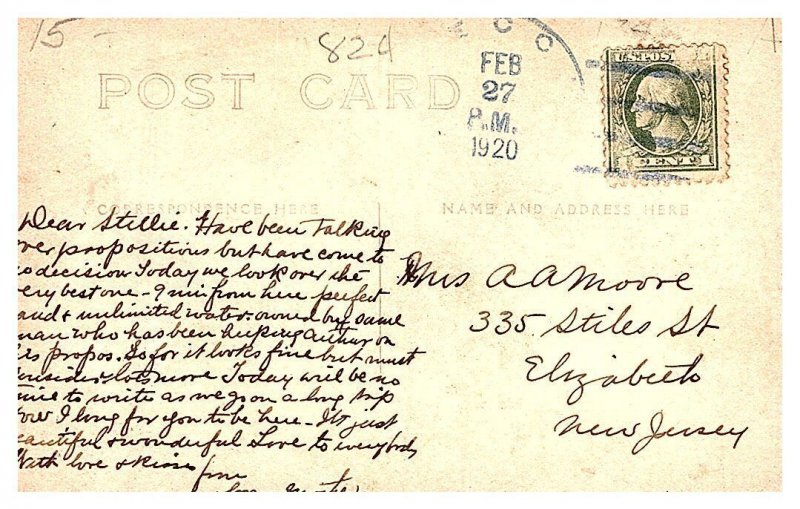 15-
824
CO
FEB
27
P.M.
1920
U.S. POSTAGE
1 CENT 1
POST CARD
CORRESPONDENCE HERE
NAME AND ADDRESS HERE
Dear Stillie. Have been talking
ver propositions but have come to
o decision Today we look over the
ery best one - 9 min from here perfect
and & unlimited water owned by same
man who has been helping Arthur on
is propos. So far it looks fine but must
nsider lots more Today will be no
ime to write as we go on a long trip
ow I long for you to be here - It's just
eautiful & wonderful & Love to everybody
With love & kisses
from
Mrs A A Moore
335 Stiles St
Elizabeth
New Jersey